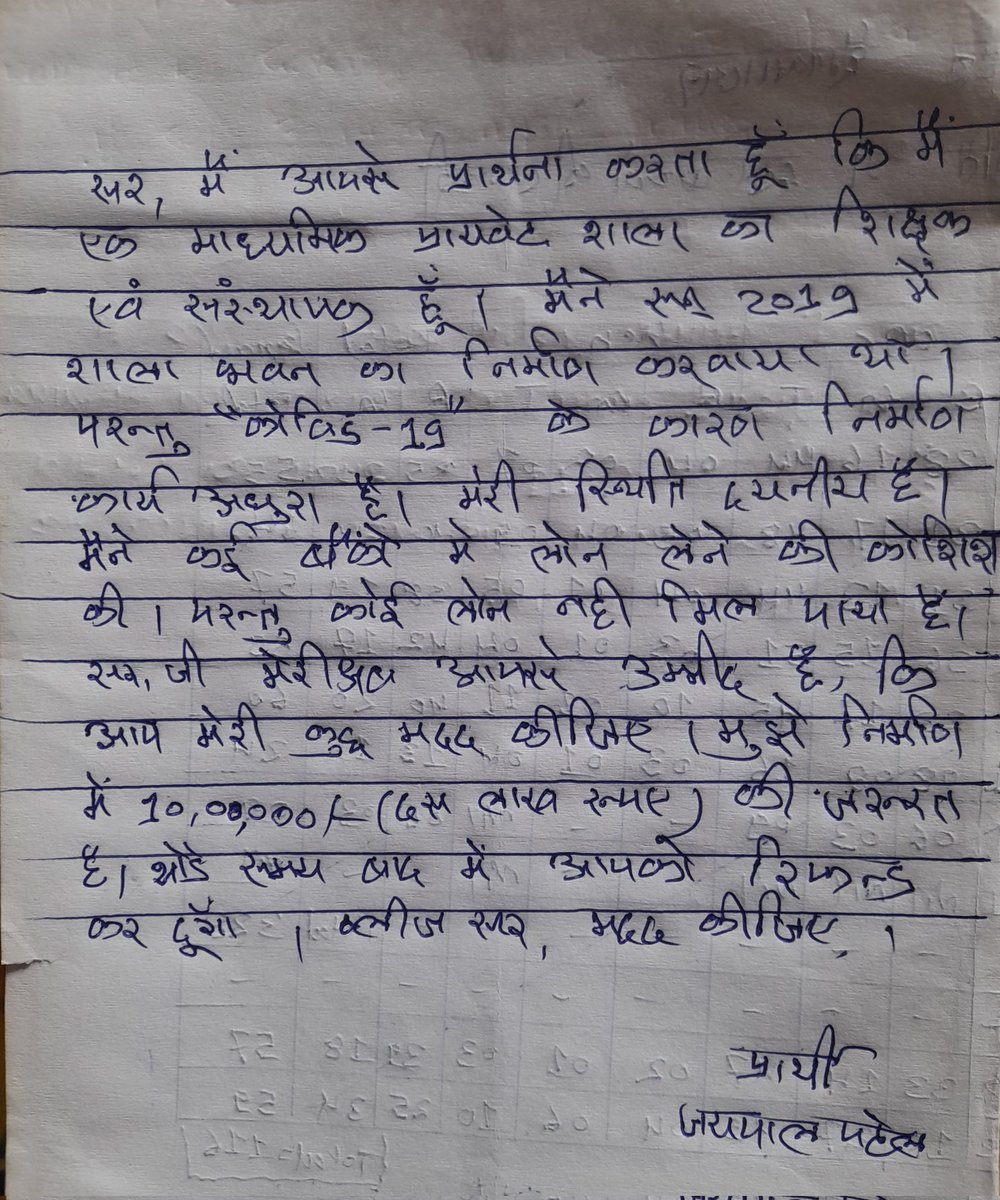 सर, मैं आपसे प्रार्थना करता हूँ कि मैं
एक माध्यमिक प्रायवेट शाला का शिक्षक
एवं संस्थापक हूँ। मैंने सन् 2019 में
शाला भवन का निर्माण करवाया था।
परन्तु "कोविड-19" के कारण निर्माण
कार्य अधुरा है। मेरी स्थिति दयनीय है।
मैंने कई बैंकों में लोन लेने की कोशिश
की। परन्तु कोई लोन नही मिल पाया है।
सर, जी मेरी अब आपसे उम्मीद है, कि
आप मेरी कुछ मदद कीजिए। मुझे निर्माण
में 10,00,000/- (दस लाख रूपए) की जरूरत
है। थोडे समय बाद में आपको रिफन्ड
कर दूँगा । प्लीज सर, मदद कीजिए, ।
प्रार्थी
जयपाल पटेल